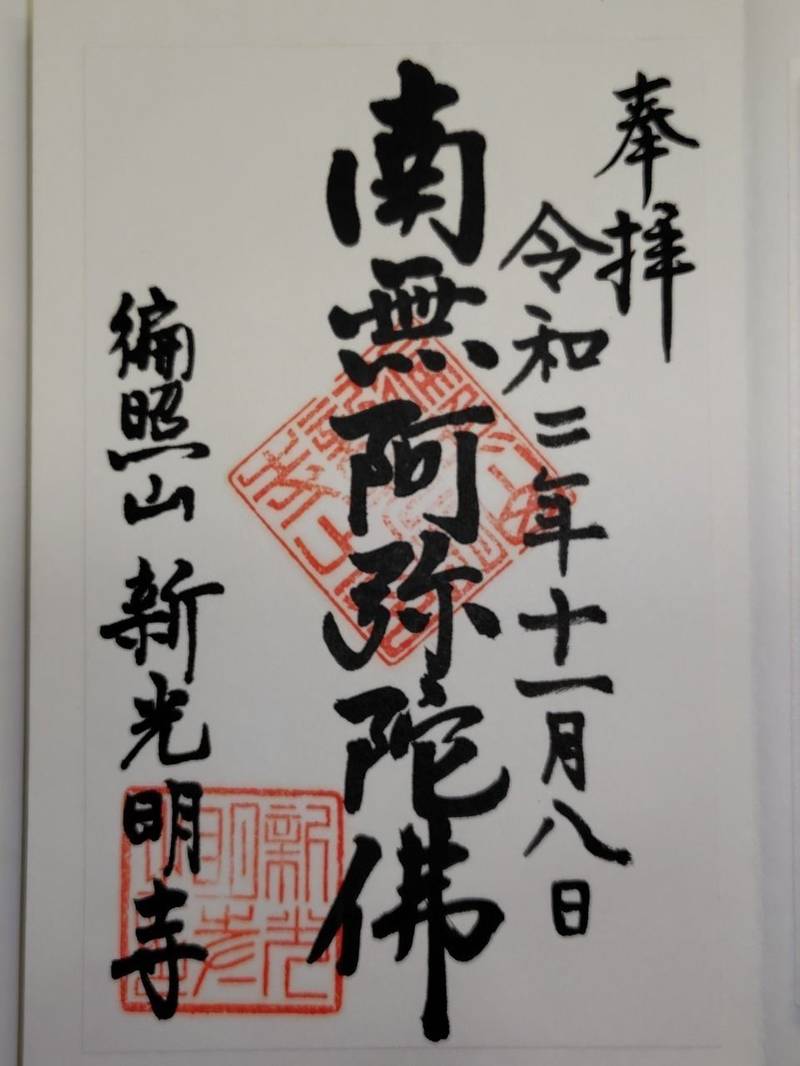 奉拝
令和二年十一月八日
南無阿弥陀佛
徧照山 新光明寺